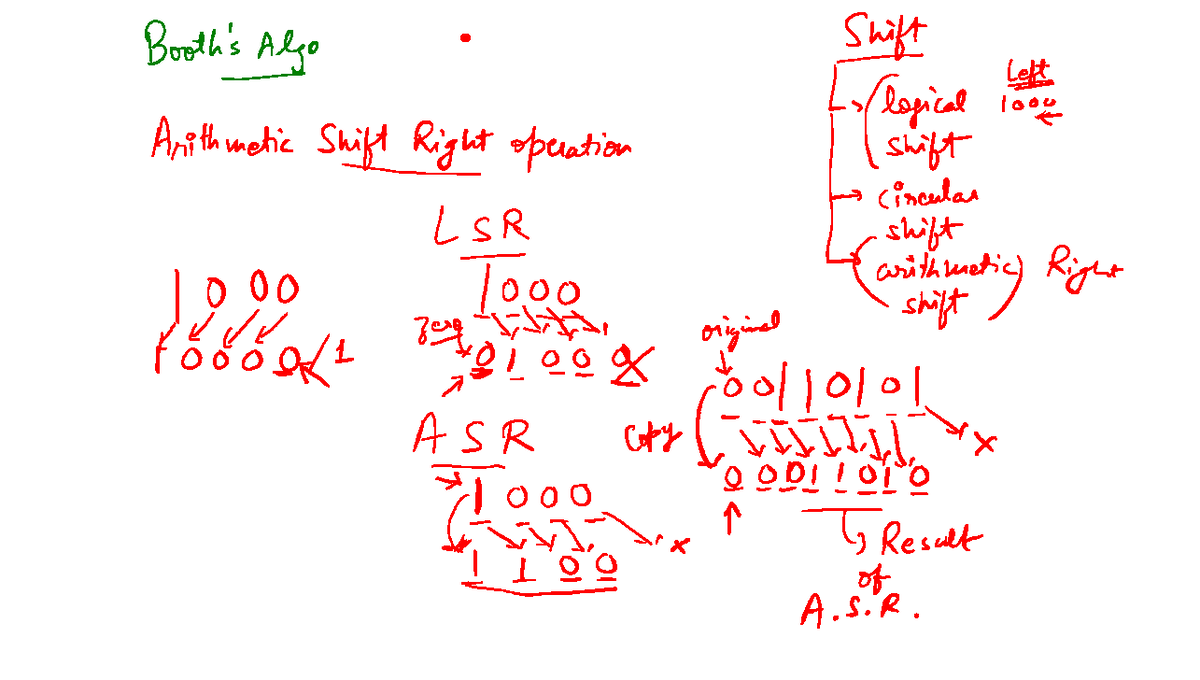 Booth's Algo
Arithmetic Shift Right operation
Shift
logical shift
Left
1000
circular shift
arithmetic shift
Right
1 0 0 0
1 0 0 0 0
1
L S R
1 0 0 0
Zero
0 1 0 0 0 X
A S R
1 0 0 0
x
1 1 0 0
original
0 0 1 1 0 1 0 1
copy
x
0 0 0 1 1 0 1 0
Result
of
A.S.R.